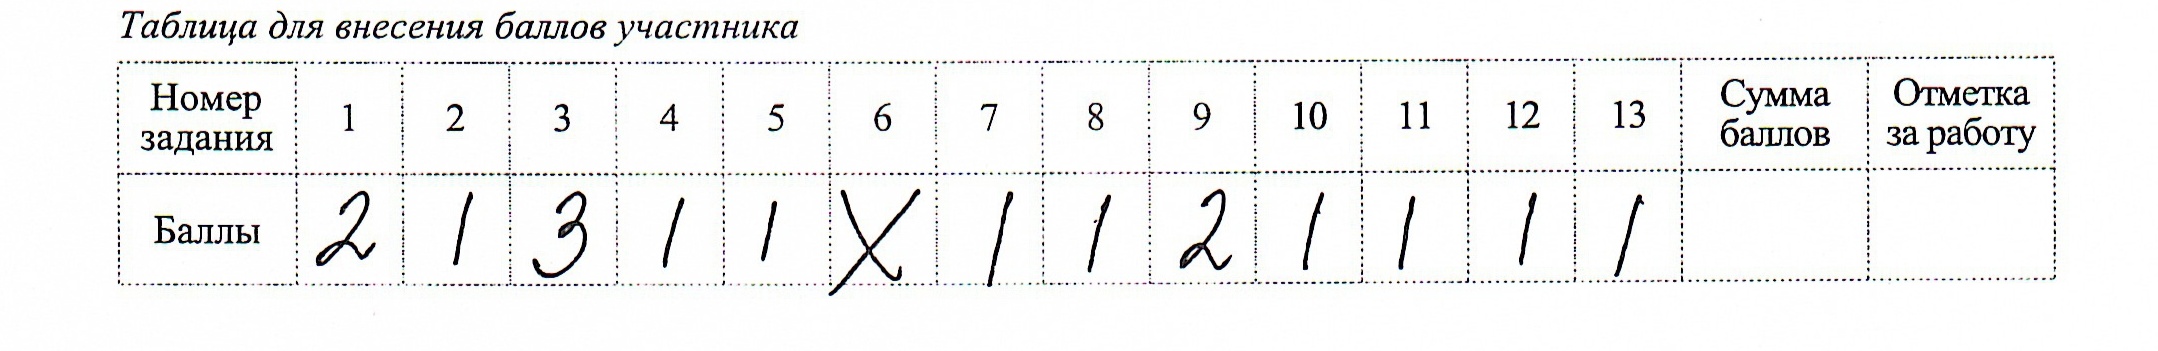 Таблица для внесения баллов участника
Номер задания 1 2 3 4 5 6 7 8 9 10 11 12 13 Сумма баллов Отметка за работу
Баллы 2 1 3 1 1 X 1 1 2 1 1 1 1